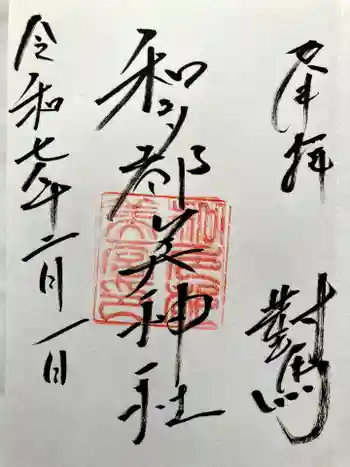 奉拝
對馬
和多都美神社
令和七年二月一日